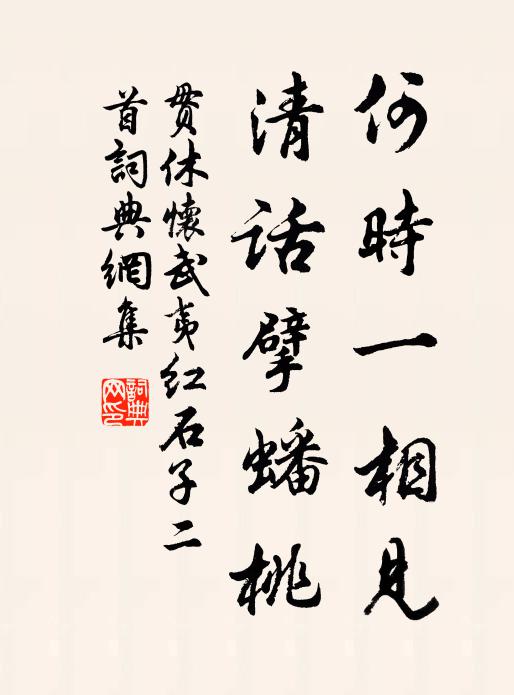 何時一相見
清話擘蟠桃
貫休懷武夷紅石子二
首詞典網集
詞典
网印